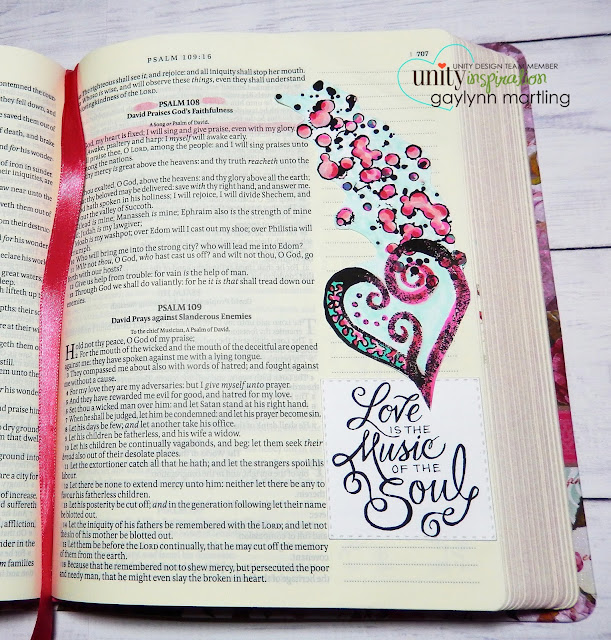 they fell down, and
saved them out
of death, and brake
and for his wonder
of iron in sunder.
their iniquities, are
near unto the
and for his wonder
great waters;
deep.
which lifteth up
with their
and praise him
dry ground
them that dwell
ground into
are a city for
and suffereth
of increase.
affliction,
wander in the
families
PSALM 109:16
707
UNITY DESIGN TEAM MEMBER
unity inspiration
gaylynn martling
righteous shall see it, and rejoice: and all iniquity shall stop her mouth.
Whoso is wise, and will observe these things, even they shall understand
lovingkindness of the LORD.
PSALM 108
David Praises God's Faithfulness
A Song or Psalm of David.
God, my heart is fixed; I will sing and give praise, even with my glory
Awake, psaltery and harp: I myself will awake early.
I will praise thee, O LORD, among the people: and I will sing praises unto
among the nations.
thy mercy is great above the heavens: and thy truth reacheth unto the
thou exalted, O God, above the heavens: and thy glory above all the earth;
thy beloved may be delivered: save with thy right hand, and answer me.
hath spoken in his holiness; I will rejoice, I will divide Shechem, and
out the valley of Succoth.
Gilead is mine; Manasseh is mine; Ephraim also is the strength of mine
Judah is my lawgiver;
Moab is my washpot; over Edom will I cast out my shoe; over Philistia will
triumph.
Who will bring me into the strong city? who will lead me into Edom?
Wilt not thou, O God, who hast cast us off? and wilt not thou, O God, go
forth with our hosts?
Give us help from trouble: for vain is the help of man.
13 Through God we shall do valiantly: for he it is that shall tread down our
enemies.
PSALM 109
David Prays against Slanderous Enemies
To the chief Musician, A Psalm of David.
Hold not thy peace, O God of my praise;
2 For the mouth of the wicked and the mouth of the deceitful are opened
against me: they have spoken against me with a lying tongue.
3 They compassed me about also with words of hatred; and fought against
me without a cause.
4 For my love they are my adversaries: but I give myself unto prayer.
5 And they have rewarded me evil for good, and hatred for my love.
6 Set thou a wicked man over him: and let Satan stand at his right hand.
7 When he shall be judged, let him be condemned: and let his prayer become sin.
8 Let his days be few; and let another take his office.
9 Let his children be fatherless, and his wife a widow.
10 Let his children be continually vagabonds, and beg: let them seek their
bread also out of their desolate places.
11 Let the extortioner catch all that he hath; and let the strangers spoil his
labour.
12 Let there be none to extend mercy unto him: neither let there be any to
favour his fatherless children.
13 Let his posterity be cut off; and in the generation following let their name
be blotted out.
14 Let the iniquity of his fathers be remembered with the LORD; and let not
the sin of his mother be blotted out.
15 Let them be before the LORD continually, that he may cut off the memory
of them from the earth.
16 Because that he remembered not to shew mercy, but persecuted the poor
and needy man, that he might even slay the broken in heart.
Love
IS THE
Music
OF THE
Soul